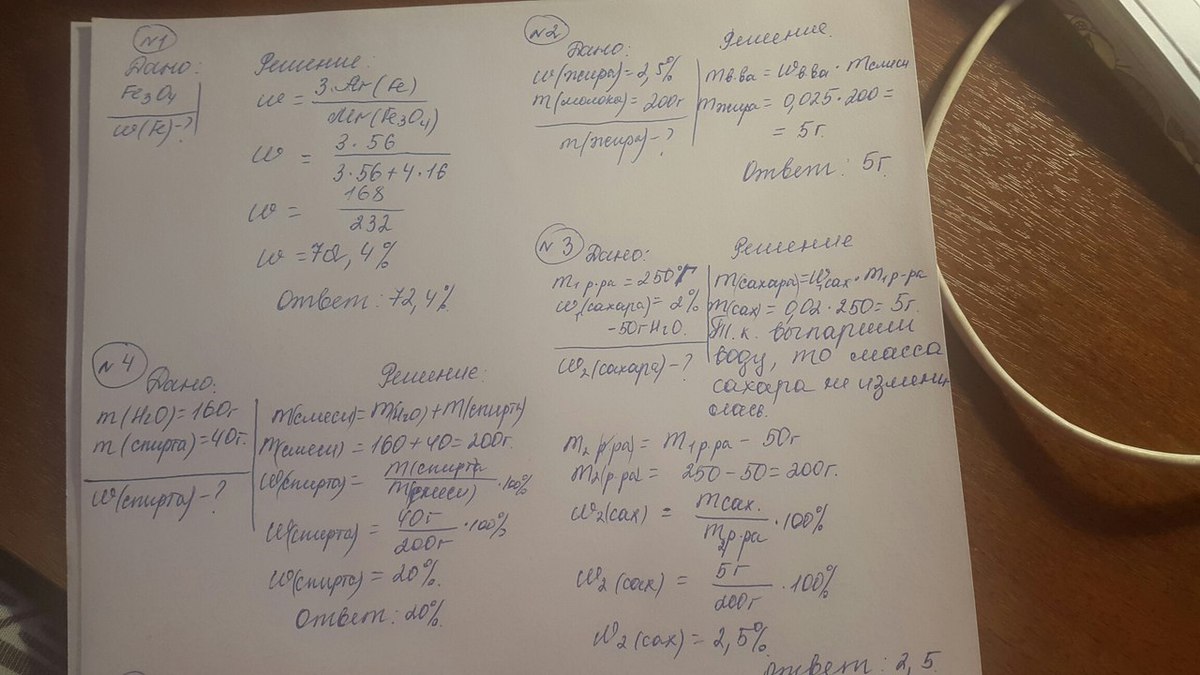 №1
Дано:
Fe3O4
w(Fe)-?
Решение:
w = 3·Ar(Fe) / Mr(Fe3O4)
w = 3·56 / 3·56+4·16
w = 168 / 232
w = 72,4%
Ответ: 72,4%
№2
Дано:
w(жира)=2,5%
m(молока)=200г
m(жира)-?
Решение.
mв.ва = wв.ва · mсмеси
mжира = 0,025·200=
= 5г.
Ответ: 5г.
№3
Дано:
m1 р-ра = 250г
w1(сахара)= 2%
-50г H2O.
w2(сахара)-?
Решение
m(сахара)=w1сах·m1р-ра
m(сах)= 0,02·250=5г.
Т.к. выпарили
воду, то масса
сахара не измени
лась.
m2(р-ра)= m1р.ра - 50г
m2(р-ра)= 250-50=200г.
w2(сах) = mсах. / m2р-ра ·100%
w2(сах) = 5г / 200г ·100%
w2(сах)=2,5%
Ответ: 2,5
№4
Дано:
m(H2O)=160г
m(спирта)=40г.
w(спирта)-?
Решение:
m(смеси)=m(H2O)+m(спирта)
m(смеси)=160+40=200г.
w(спирта)= m(спирта / m(смеси) ·100%
w(спирта)= 40г / 200г ·100%
w(спирта)=20%.
Ответ: 20%.